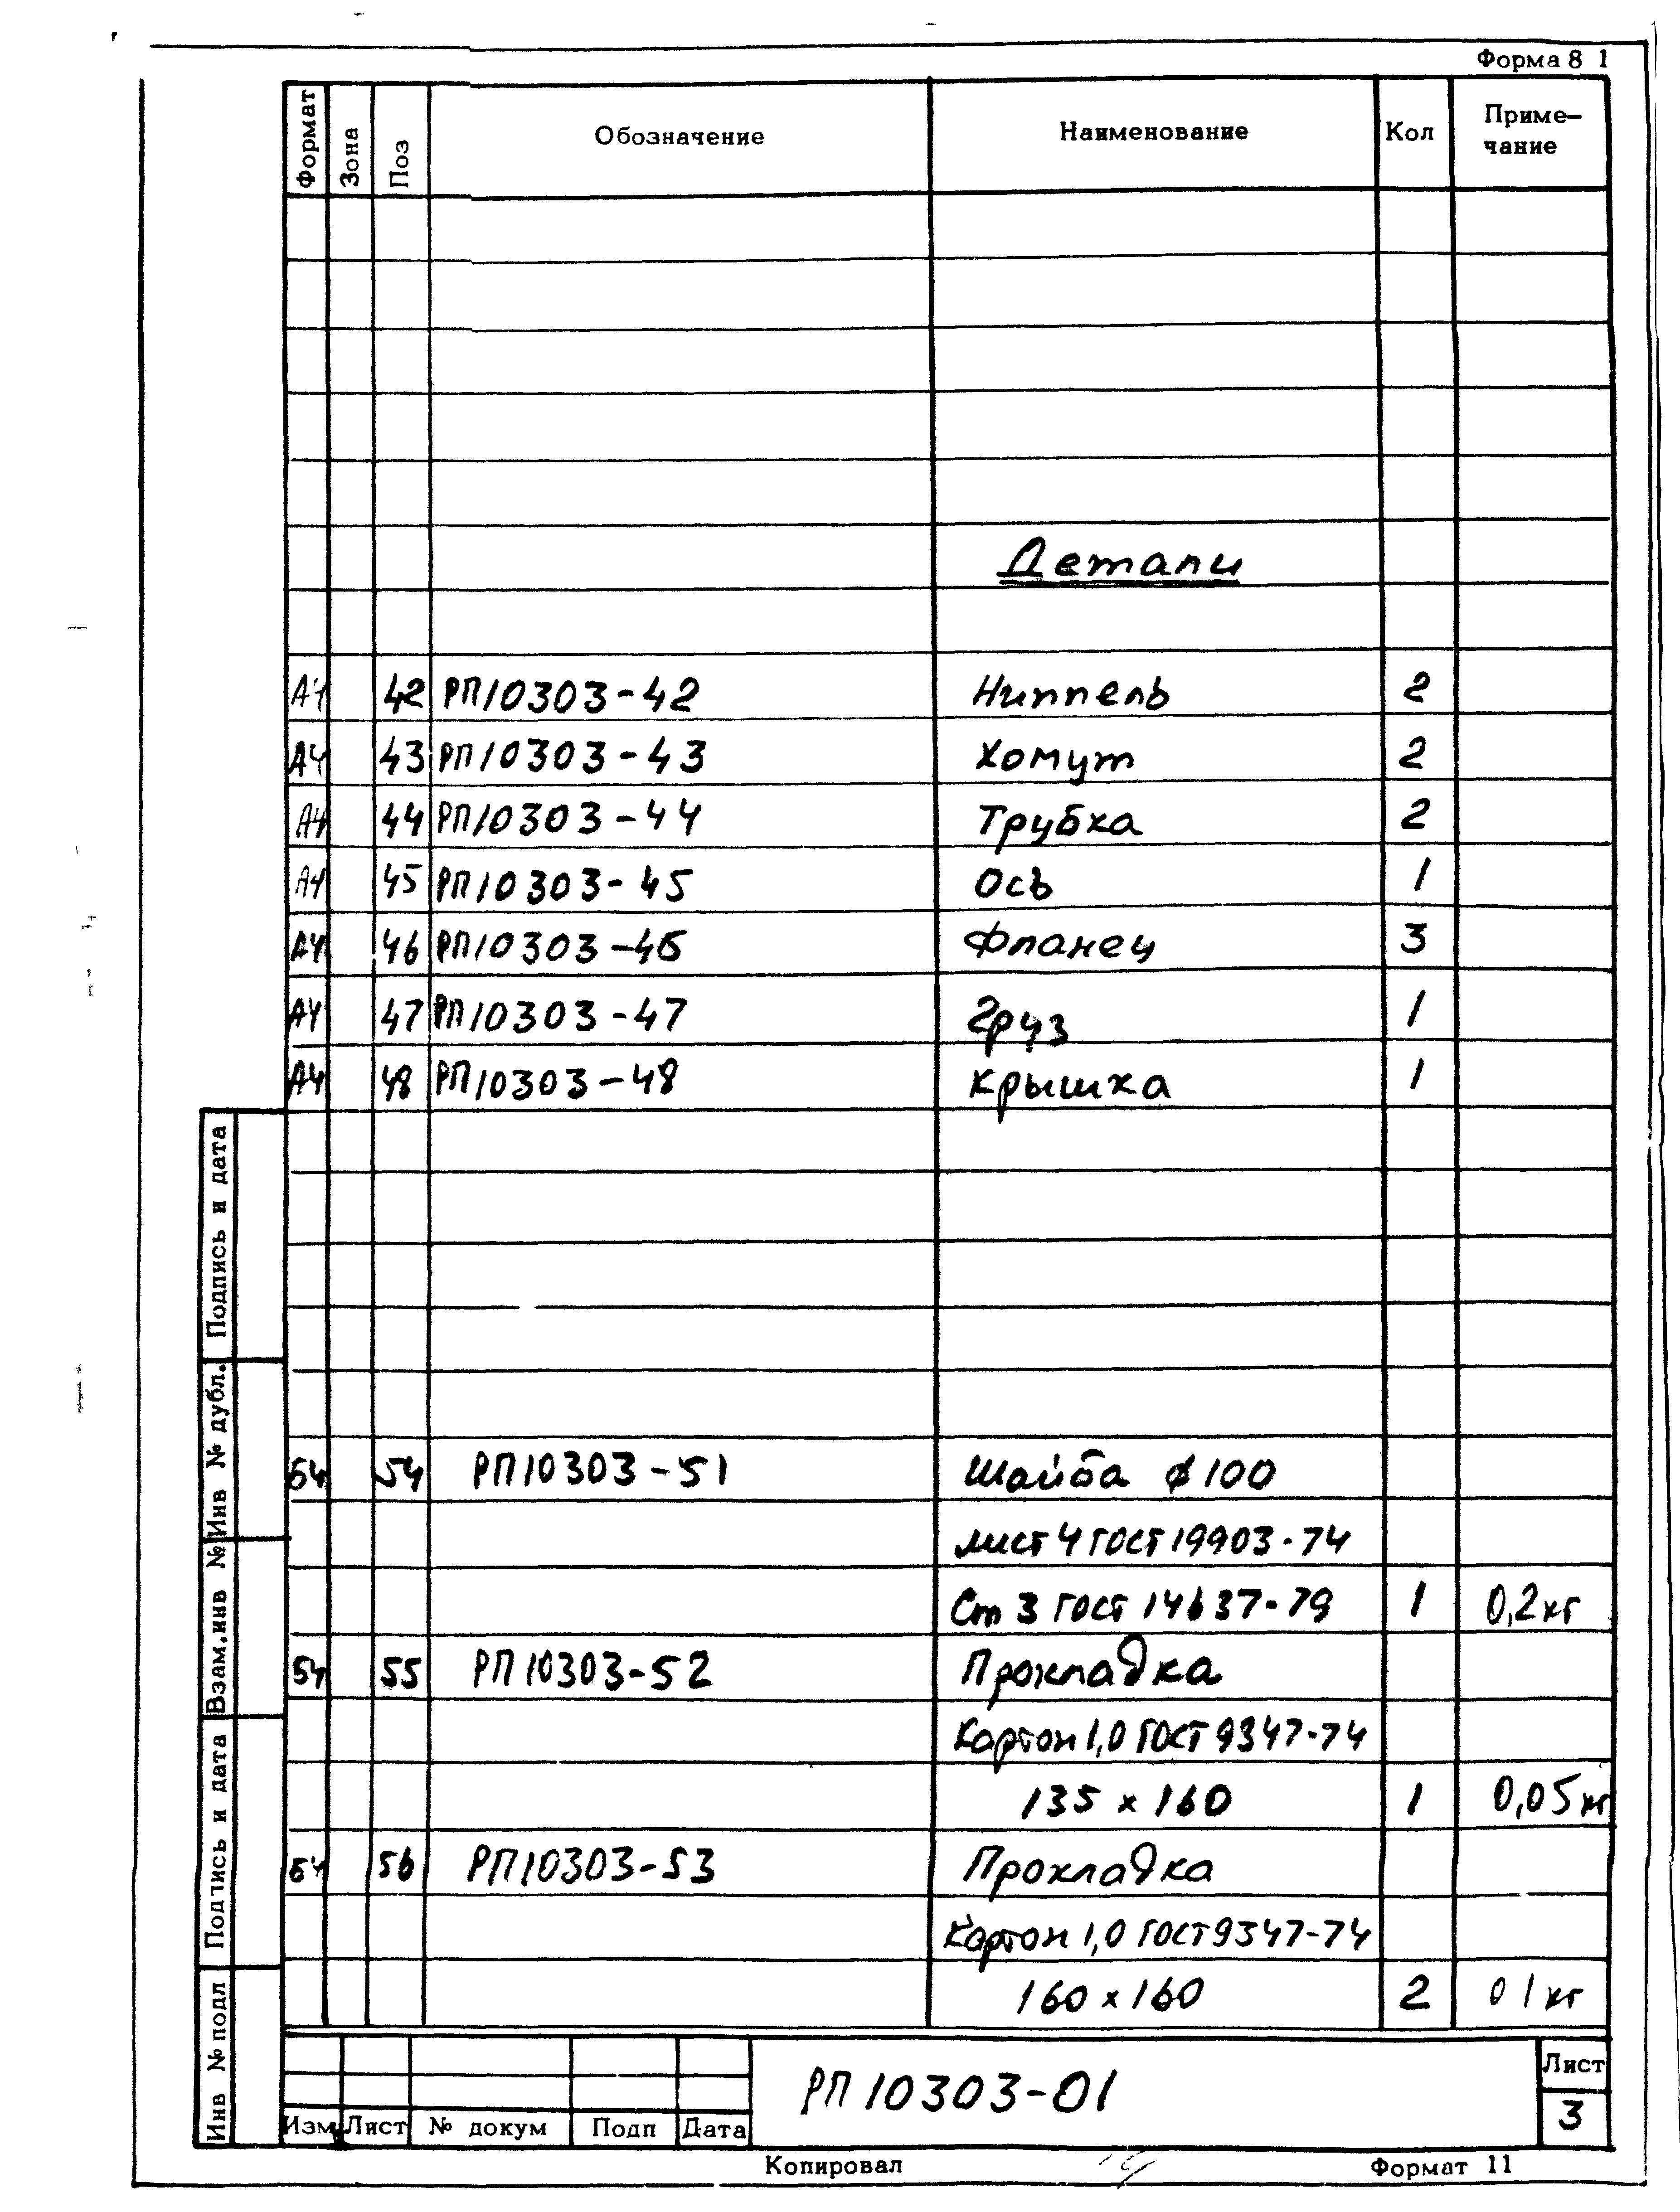 Форма 8 1
Формат Зона Поз Обозначение Наименование Кол Приме-
чание
Детали
А4 42 РП10303-42 Ниппель 2
А4 43 РП10303-43 Хомут 2
А4 44 РП10303-44 Трубка 2
А4 45 РП10303-45 Ось 1
А4 46 РП10303-46 Фланец 3
А4 47 РП10303-47 Груз 1
А4 48 РП10303-48 Крышка 1
БЧ 54 РП10303-51 Шайба ϕ100
Лист 4 ГОСТ 19903-74
Ст 3 ГОСТ 14637-79 1 0,2кг
БЧ 55 РП10303-52 Прокладка
Картон 1,0 ГОСТ 9347-74
135 х 160 1 0,05кг
БЧ 56 РП10303-53 Прокладка
Картон 1,0 ГОСТ 9347-74
160 х 160 2 0 1кг
Подпись и дата
Инв № дубл.
Взам.инв №
Подпись и дата
Инв № подл
Изм Лист № докум Подп Дата
РП 10303-01
Лист
3
Копировал Формат 11